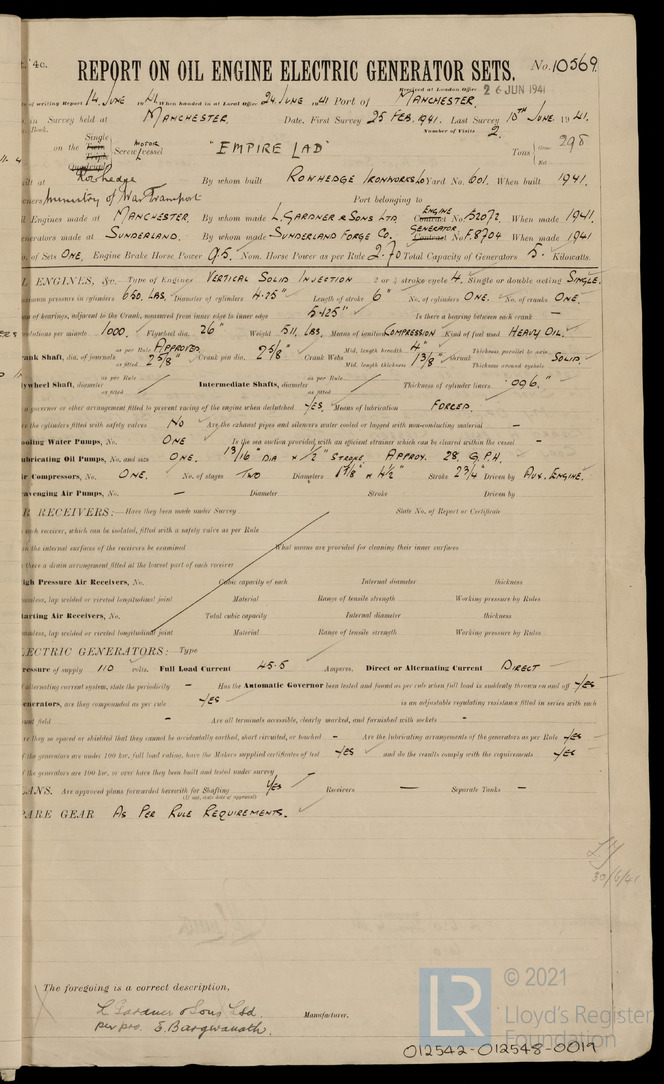 4c. REPORT ON OIL ENGINE ELECTRIC GENERATOR SETS. No. 10569
Received at London Office 26 JUN 1941
of writing Report 14. JUNE 1941 When handed in at Local Office 24. JUNE 1941 Port of MANCHESTER.
in Survey held at MANCHESTER. Date, First Survey 25 FEB. 1941. Last Survey 10TH JUNE. 1941.
Book. Number of Visits 2.
on the Single Twin Triple Quadruple Screw MOTOR vessel "EMPIRE LAD" Tons Gross 298 Net
lt at Rowhedge By whom built ROWHEDGE IRONWORKS Co Yard No. 601. When built 1941.
ners Ministry of War Transport Port belonging to
l Engines made at MANCHESTER. By whom made L. GARDNER & SONS LTD. ENGINE Contract No. 52072. When made 1941.
nerators made at SUNDERLAND. By whom made SUNDERLAND FORGE Co. GENERATOR Contract No. F.8704 When made 1941
. of Sets ONE. Engine Brake Horse Power 9.5. Nom. Horse Power as per Rule 2.70 Total Capacity of Generators 5. Kilowatts.
L ENGINES, &c. Type of Engines VERTICAL SOLID INJECTION 2 or 4 stroke cycle 4. Single or double acting SINGLE.
ximum pressure in cylinders 650. LBS. Diameter of cylinders 4.25" Length of stroke 6" No. of cylinders ONE. No. of cranks ONE.
n of bearings, adjacent to the Crank, measured from inner edge to inner edge 5.125" Is there a bearing between each crank —
volutions per minute 1000. Flywheel dia. 26" Weight 511. LBS. Means of ignition COMPRESSION. Kind of fuel used HEAVY OIL.
rank Shaft, dia. of journals as per Rule APPROVED. as fitted 2 5/8" Crank pin dia. 2 5/8" Crank Webs Mid. length breadth 4" Mid. length thickness 1 3/8" shrunk Thickness parallel to axis Thickness around eyehole SOLID.
lywheel Shaft, diameter as per Rule as fitted Intermediate Shafts, diameter as per Rule as fitted Thickness of cylinder liners .096."
a governor or other arrangement fitted to prevent racing of the engine when declutched YES. Means of lubrication FORCED.
re the cylinders fitted with safety valves NO Are the exhaust pipes and silencers water cooled or lagged with non-conducting material —
ooling Water Pumps, No. ONE Is the sea suction provided with an efficient strainer which can be cleared within the vessel —
ubricating Oil Pumps, No. and size ONE. 13/16" DIA × 1/2" STROKE APPROX. 28. G.P.H.
ir Compressors, No. ONE. No. of stages TWO Diameters 1 7/8" × 4 1/2" Stroke 2 3/4" Driven by AUX. ENGINE.
cavenging Air Pumps, No. — Diameter Stroke Driven by
R RECEIVERS:—Have they been made under Survey State No. of Report or Certificate
each receiver, which can be isolated, fitted with a safety valve as per Rule
n the internal surfaces of the receivers be examined What means are provided for cleaning their inner surfaces
there a drain arrangement fitted at the lowest part of each receiver
igh Pressure Air Receivers, No. Cubic capacity of each Internal diameter thickness
amless, lap welded or riveted longitudinal joint Material Range of tensile strength Working pressure by Rules
tarting Air Receivers, No. Total cubic capacity Internal diameter thickness
amless, lap welded or riveted longitudinal joint Material Range of tensile strength Working pressure by Rules
LECTRIC GENERATORS: Type
ressure of supply 110 volts. Full Load Current 45.5 Amperes. Direct or Alternating Current DIRECT
alternating current system, state the periodicity — Has the Automatic Governor been tested and found as per rule when full load is suddenly thrown on and off YES
enerators, are they compounded as per rule YES is an adjustable regulating resistance fitted in series with each
unt field — Are all terminals accessible, clearly marked, and furnished with sockets -
re they so spaced or shielded that they cannot be accidentally earthed, short circuited, or touched - Are the lubricating arrangements of the generators as per Rule YES
f the generators are under 100 kw. full load rating, have the Makers supplied certificates of test YES and do the results comply with the requirements YES
f the generators are 100 kw. or over have they been built and tested under survey —
LANS. Are approved plans forwarded herewith for Shafting YES Receivers — Separate Tanks —
(If not, state date of approval)
ARE GEAR AS PER RULE REQUIREMENTS.
30/6/41
The foregoing is a correct description,
L Gardner & Sons Ltd
per pro. E. Bargwanath. Manufacturer.
LR © 2021
Lloyd's Register
Foundation
012542-012548-0019